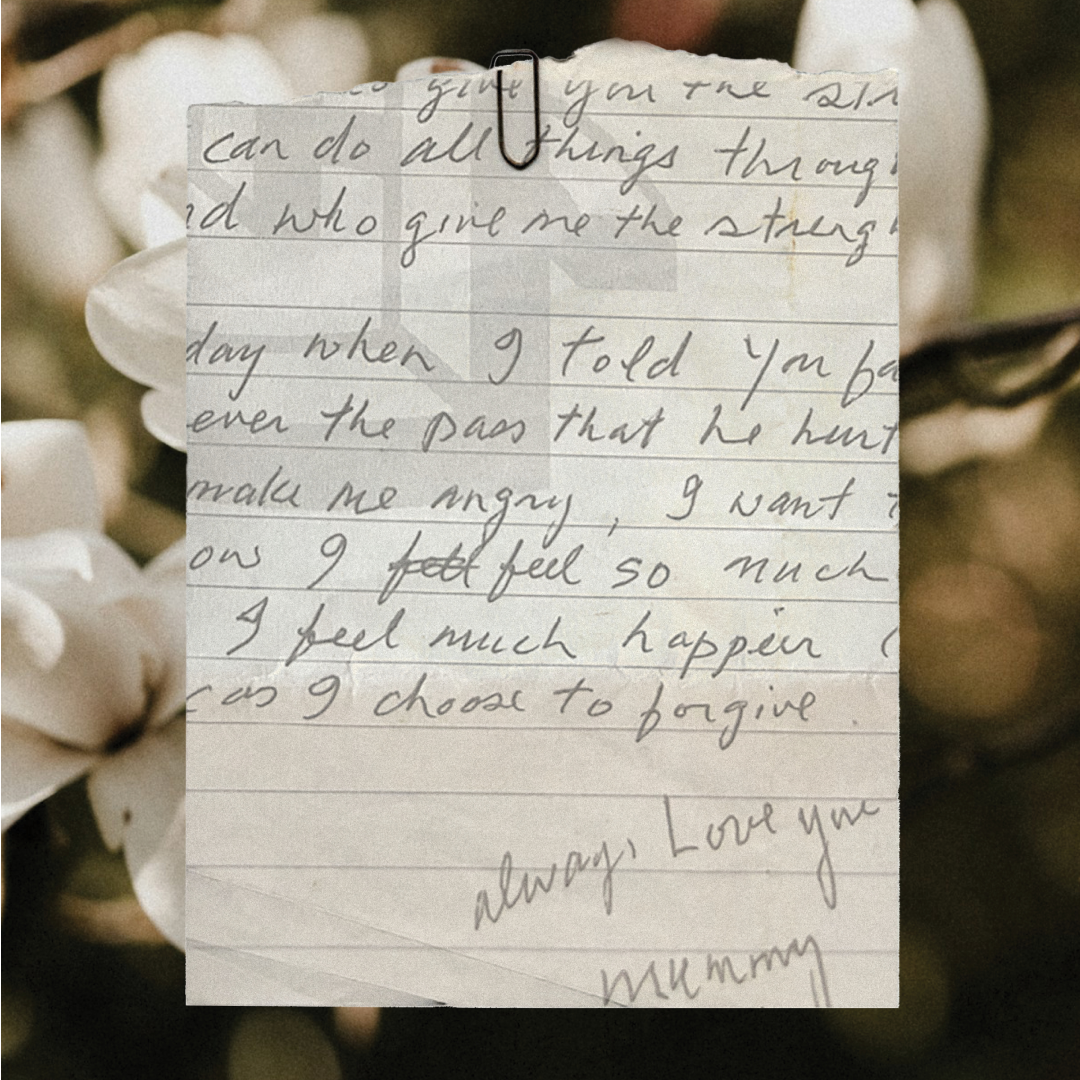 give you the
can do all things
who give me the
day when I told you
ever the pass that he hurt
make me angry, I want
I feel so much
I feel much happier
as I choose to forgive.
always, Love you
mummy